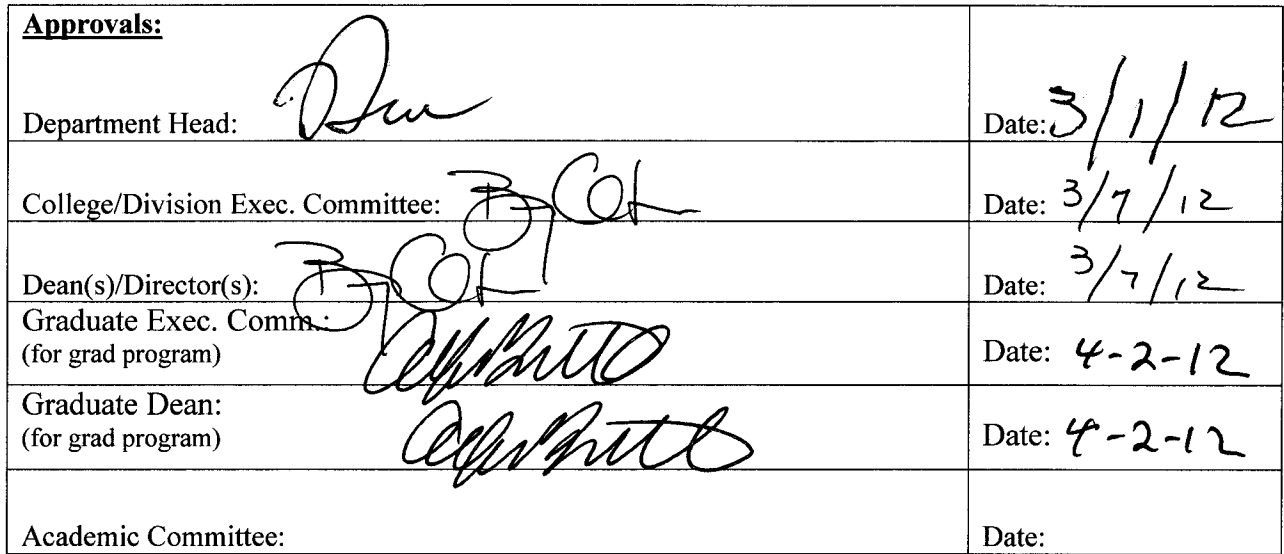 Approvals:
Department Head: Date: 3/1/12
College/Division Exec. Committee: Date: 3/7/12
Dean(s)/Director(s): Date: 3/7/12
Graduate Exec. Comm.:
(for grad program) Date: 4-2-12
Graduate Dean:
(for grad program) Date: 4-2-12
Academic Committee: Date: